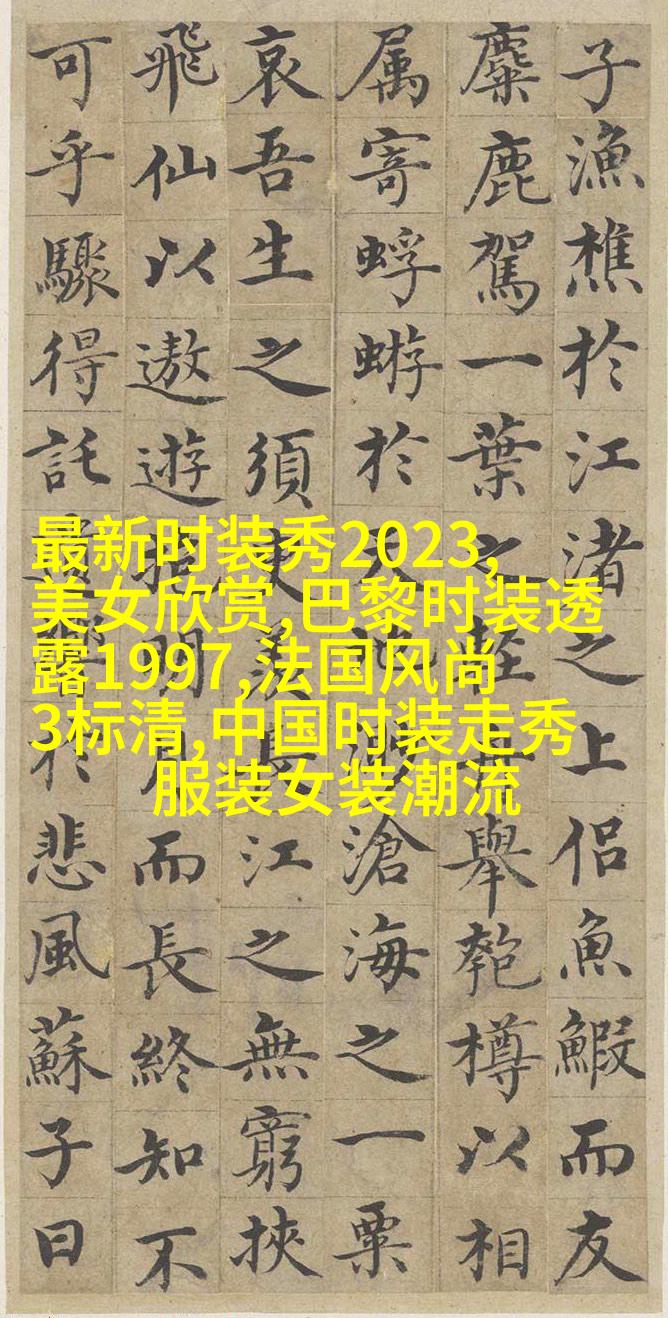 子漁樵於江渚之上侣魚鰕而友
麋鹿駕一葉之輕舟舉匏樽以相
属寄蜉蝣於天地渺滄海之一粟
哀吾生之須臾羨長江之無窮挾
飛仙以遨遊抱明月而長終知不
可乎驟得託遺響於悲風蘇子曰
最新时装秀2023,
美女欣赏,巴黎时装透
露1997,法国风尚
3标清,中国时装走秀
服装女装潮流